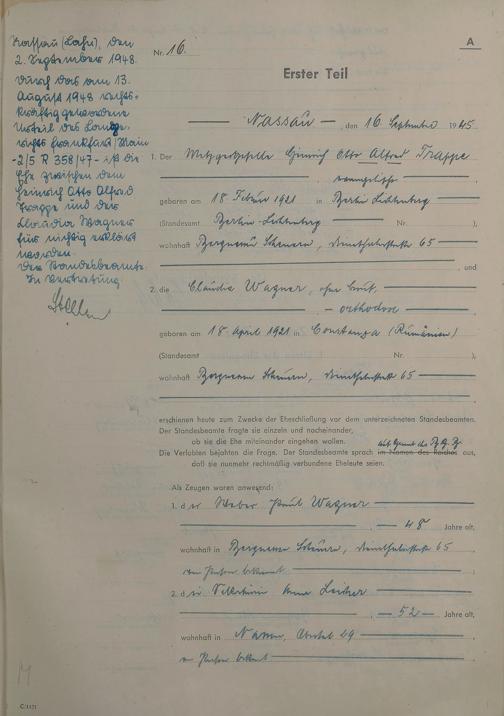 Nassau (Lahn), den
2. September 1948.
Durch das am 13.
August 1948 rechts-
kräftig gewordene
Urteil des Landge-
richts Frankfurt/Main
-2/5 R 358/47- ist die
Ehe zwischen dem
Heinrich Otto Alfred
Trappe und der
Claudia Wagner
für nichtig erklärt
worden.
Der Standesbeamte.
In Vertretung
A
Nr. 16.
Erster Teil
Nassau, den 16 September 1945
1. Der Metzgergeselle Heinrich Otto Alfred Trappe
evangelisch
geboren am 18 Februar 1921 in Berlin Lichtenberg
(Standesamt Berlin-Lichtenberg Nr. ),
wohnhaft Bergnassau Scheuern, 65
, und
2. die Claudia Wagner, ohne Beruf,
- orthodox
geboren am 18. April 1921 in Constanza (Rumänien)
(Standesamt Nr. ),
wohnhaft Bergnassau Scheuern, 65
erschienen heute zum Zwecke der Eheschließung vor dem unterzeichneten Standesbeamten.
Der Standesbeamte fragte sie einzeln und nacheinander,
ob sie die Ehe miteinander eingehen wollen.
auf Grund des
Die Verlobten bejahten die Frage. Der Standesbeamte sprach im Namen des Reiches aus,
daß sie nunmehr rechtmäßig verbundene Eheleute seien.
Als Zeugen waren anwesend:
1. der Weber Paul Wagner
, 48 Jahre alt,
wohnhaft in Bergnassau Scheuern, 65
von Person bekannt
2. d
, 52 Jahre alt,
wohnhaft in Nassau, 29
von Person bekannt
C/1121